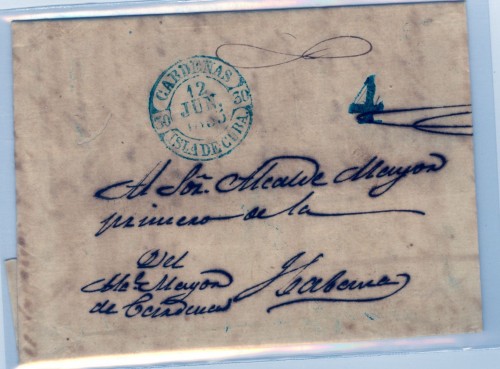 CARDENAS
30 30
12
JUN.
ISLA DE CUBA
4
Al Sōr. Alcalde Mayor
primero de la
Habana
Del
Alce. Mayor
de Cardenas